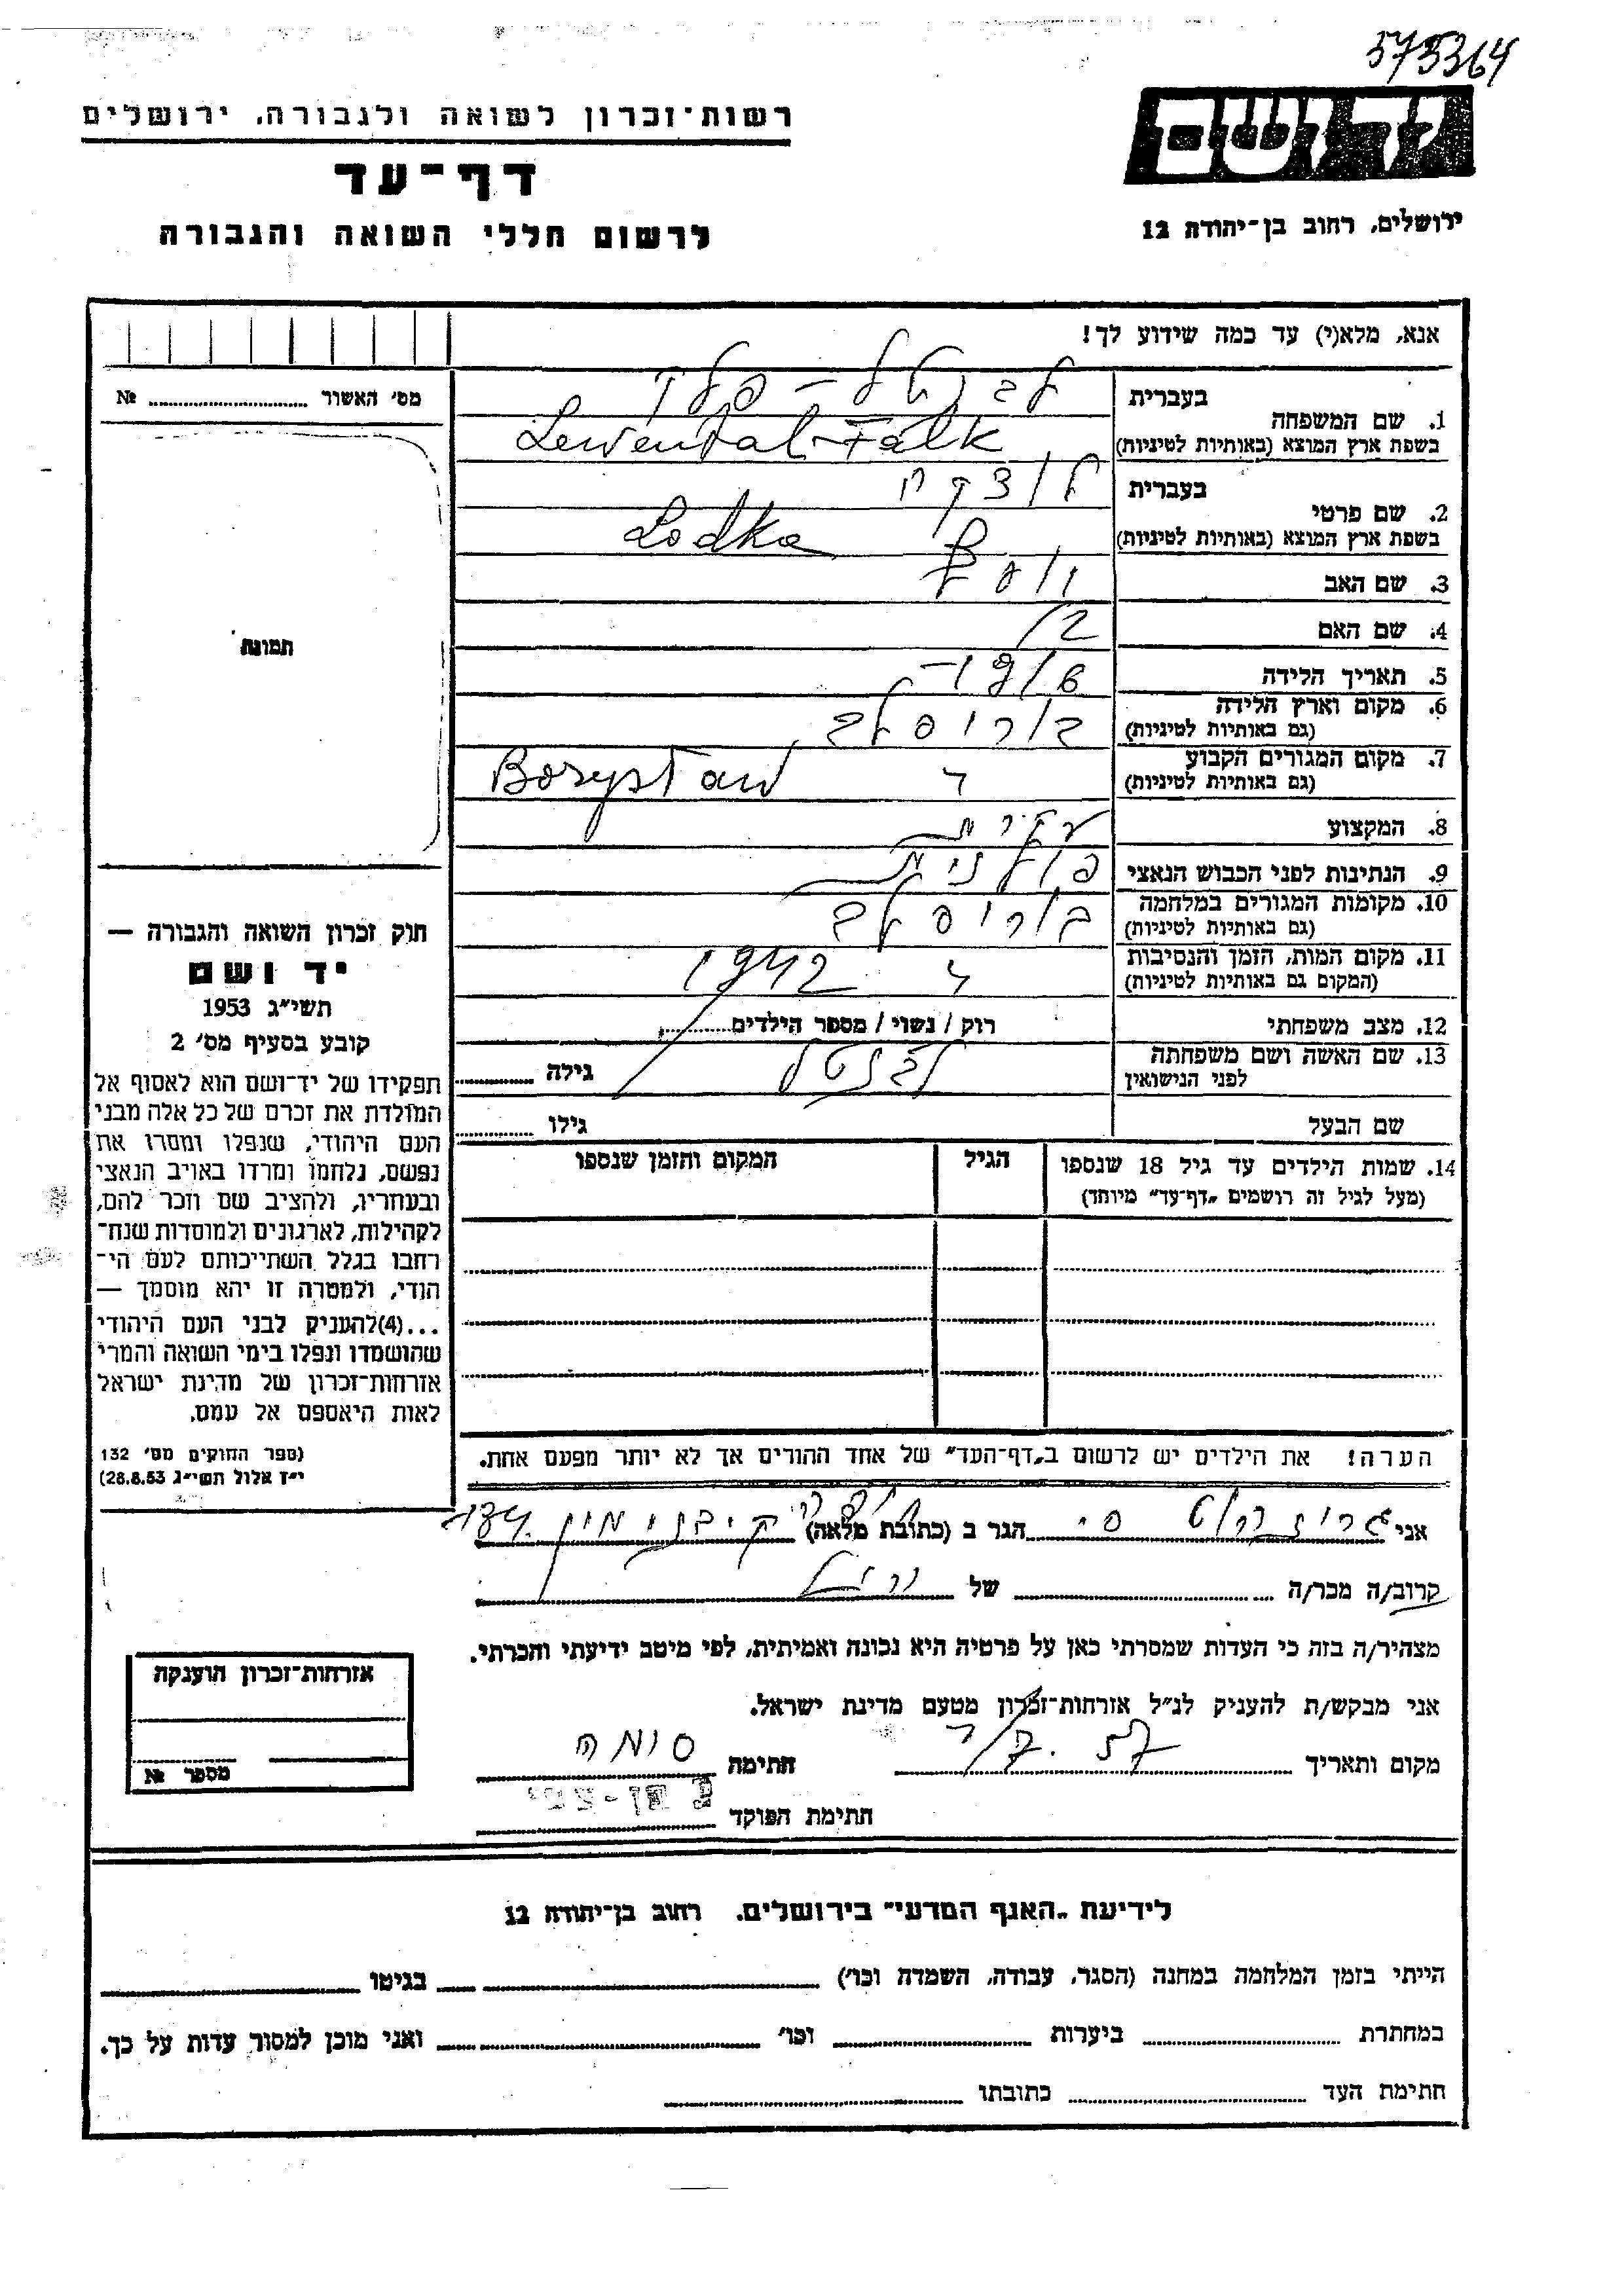 575364
יד ושם
רשות־זכרון לשואה ולגבורה, ירושלים
דף־עד
לרשום חללי השואה והגבורה
ירושלים, רחוב בן־יהודה 12
אנא, מלא(י) עד כמה שידוע לך!
מס׳ האשור ........ №
תמונה
1. שם המשפחה
בעברית
בשפת ארץ המוצא (באותיות לטיניות) Lewental-Falk
2. שם פרטי
בעברית לודקה
בשפת ארץ המוצא (באותיות לטיניות) Lodka
3. שם האב יוסף
4. שם האם
5. תאריך הלידה
6. מקום וארץ הלידה
(גם באותיות לטיניות) בוריסלב
7. מקום המגורים הקבוע
(גם באותיות לטיניות) Borysław
8. המקצוע עקרת
9. הנתינות לפני הכבוש הנאצי פולנית
10. מקומות המגורים במלחמה
(גם באותיות לטיניות) בוריסלב
11. מקום המות, הזמן והנסיבות
(המקום גם באותיות לטיניות) 1942
12. מצב משפחתי רוק / נשוי / מספר הילדים........
13. שם האשה ושם משפחתה
לפני הנישואין גילה ........
שם הבעל גילו ........
14. שמות הילדים עד גיל 18 שנספו
(מעל לגיל זה רושמים „דף־עד״ מיוחד)
הגיל
המקום והזמן שנספו
הערה! את הילדים יש לרשום ב„דף־העד״ של אחד ההורים אך לא יותר מפעם אחת.
חוק זכרון השואה והגבורה —
יד ושם
תשי״ג 1953
קובע בסעיף מס׳ 2
תפקידו של יד־ושם הוא לאסוף אל
המולדת את זכרם של כל אלה מבני
העם היהודי, שנפלו ומסרו את
נפשם, נלחמו ומרדו באויב הנאצי
ובעוזריו, ולהציב שם וזכר להם,
לקהילות, לארגונים ולמוסדות שנח־
רחבו בגלל השתייכותם לעם הי־
הודי, ולמטרה זו יהא מוסמך —
...(4)להעניק לבני העם היהודי
שהושמדו ונפלו בימי השואה והמרי
אזרחות־זכרון של מדינת ישראל
לאות היאספם אל עמם.
(ספר החוקים מס׳ 132
י״ז אלול תשי״ג 28.8.53)
אני ........ הגר ב (כתובת מלאה) ........
קרוב/ה מכר/ה ........ של ........
מצהיר/ה בזה כי העדות שמסרתי כאן על פרטיה היא נכונה ואמיתית, לפי מיטב ידיעתי והכרתי.
אני מבקש/ת להעניק לנ״ל אזרחות־זכרון מטעם מדינת ישראל.
מקום ותאריך ........ חתימה ........
חתימת הפוקד ........
אזרחות־זכרון הוענקה
מספר №
לידיעת „האגף המדעי״ בירושלים. רחוב בן־יהודה 12
הייתי בזמן המלחמה במחנה (הסגר, עבודה, השמדה וכו׳) ........ בגיטו ........
במחתרת ........ ביערות ........ וכו׳ ........ ואני מוכן למסור עדות על כך.
חתימת העד ........ כתובתו ........